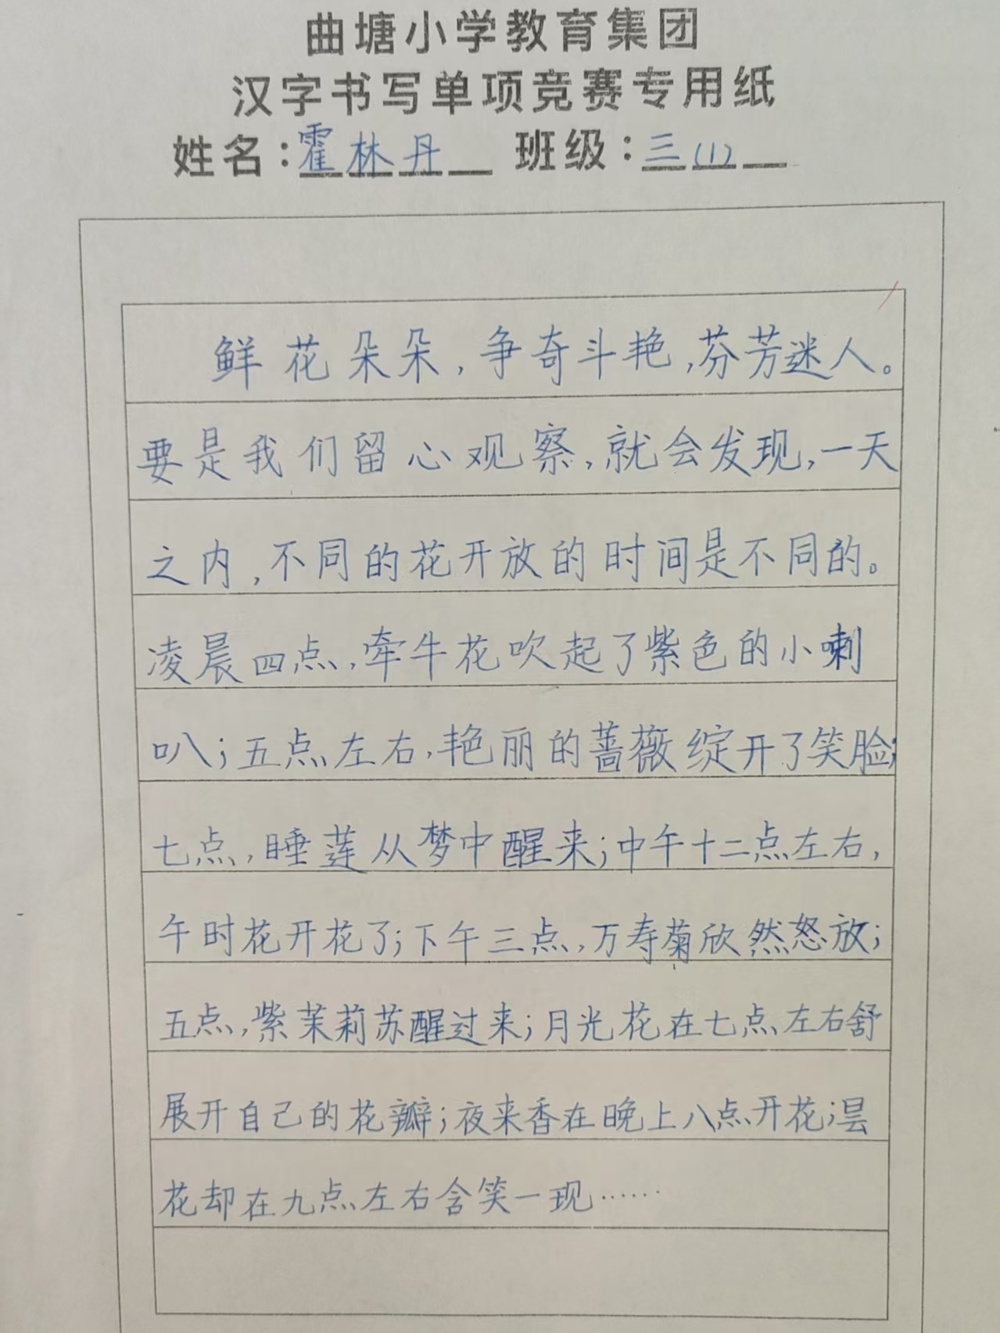 曲塘小学教育集团
汉字书写单项竞赛专用纸
姓名:霍林丹 班级:三(1)
鲜花朵朵,争奇斗艳,芬芳迷人。
要是我们留心观察,就会发现,一天
之内,不同的花开放的时间是不同的。
凌晨四点,牵牛花吹起了紫色的小喇
叭;五点左右,艳丽的蔷薇绽开了笑脸;
七点,睡莲从梦中醒来;中午十二点左右,
午时花开花了;下午三点,万寿菊欣然怒放;
五点,紫茉莉苏醒过来;月光花在七点左右舒
展开自己的花瓣;夜来香在晚上八点开花;昙
花却在九点左右含笑一现……